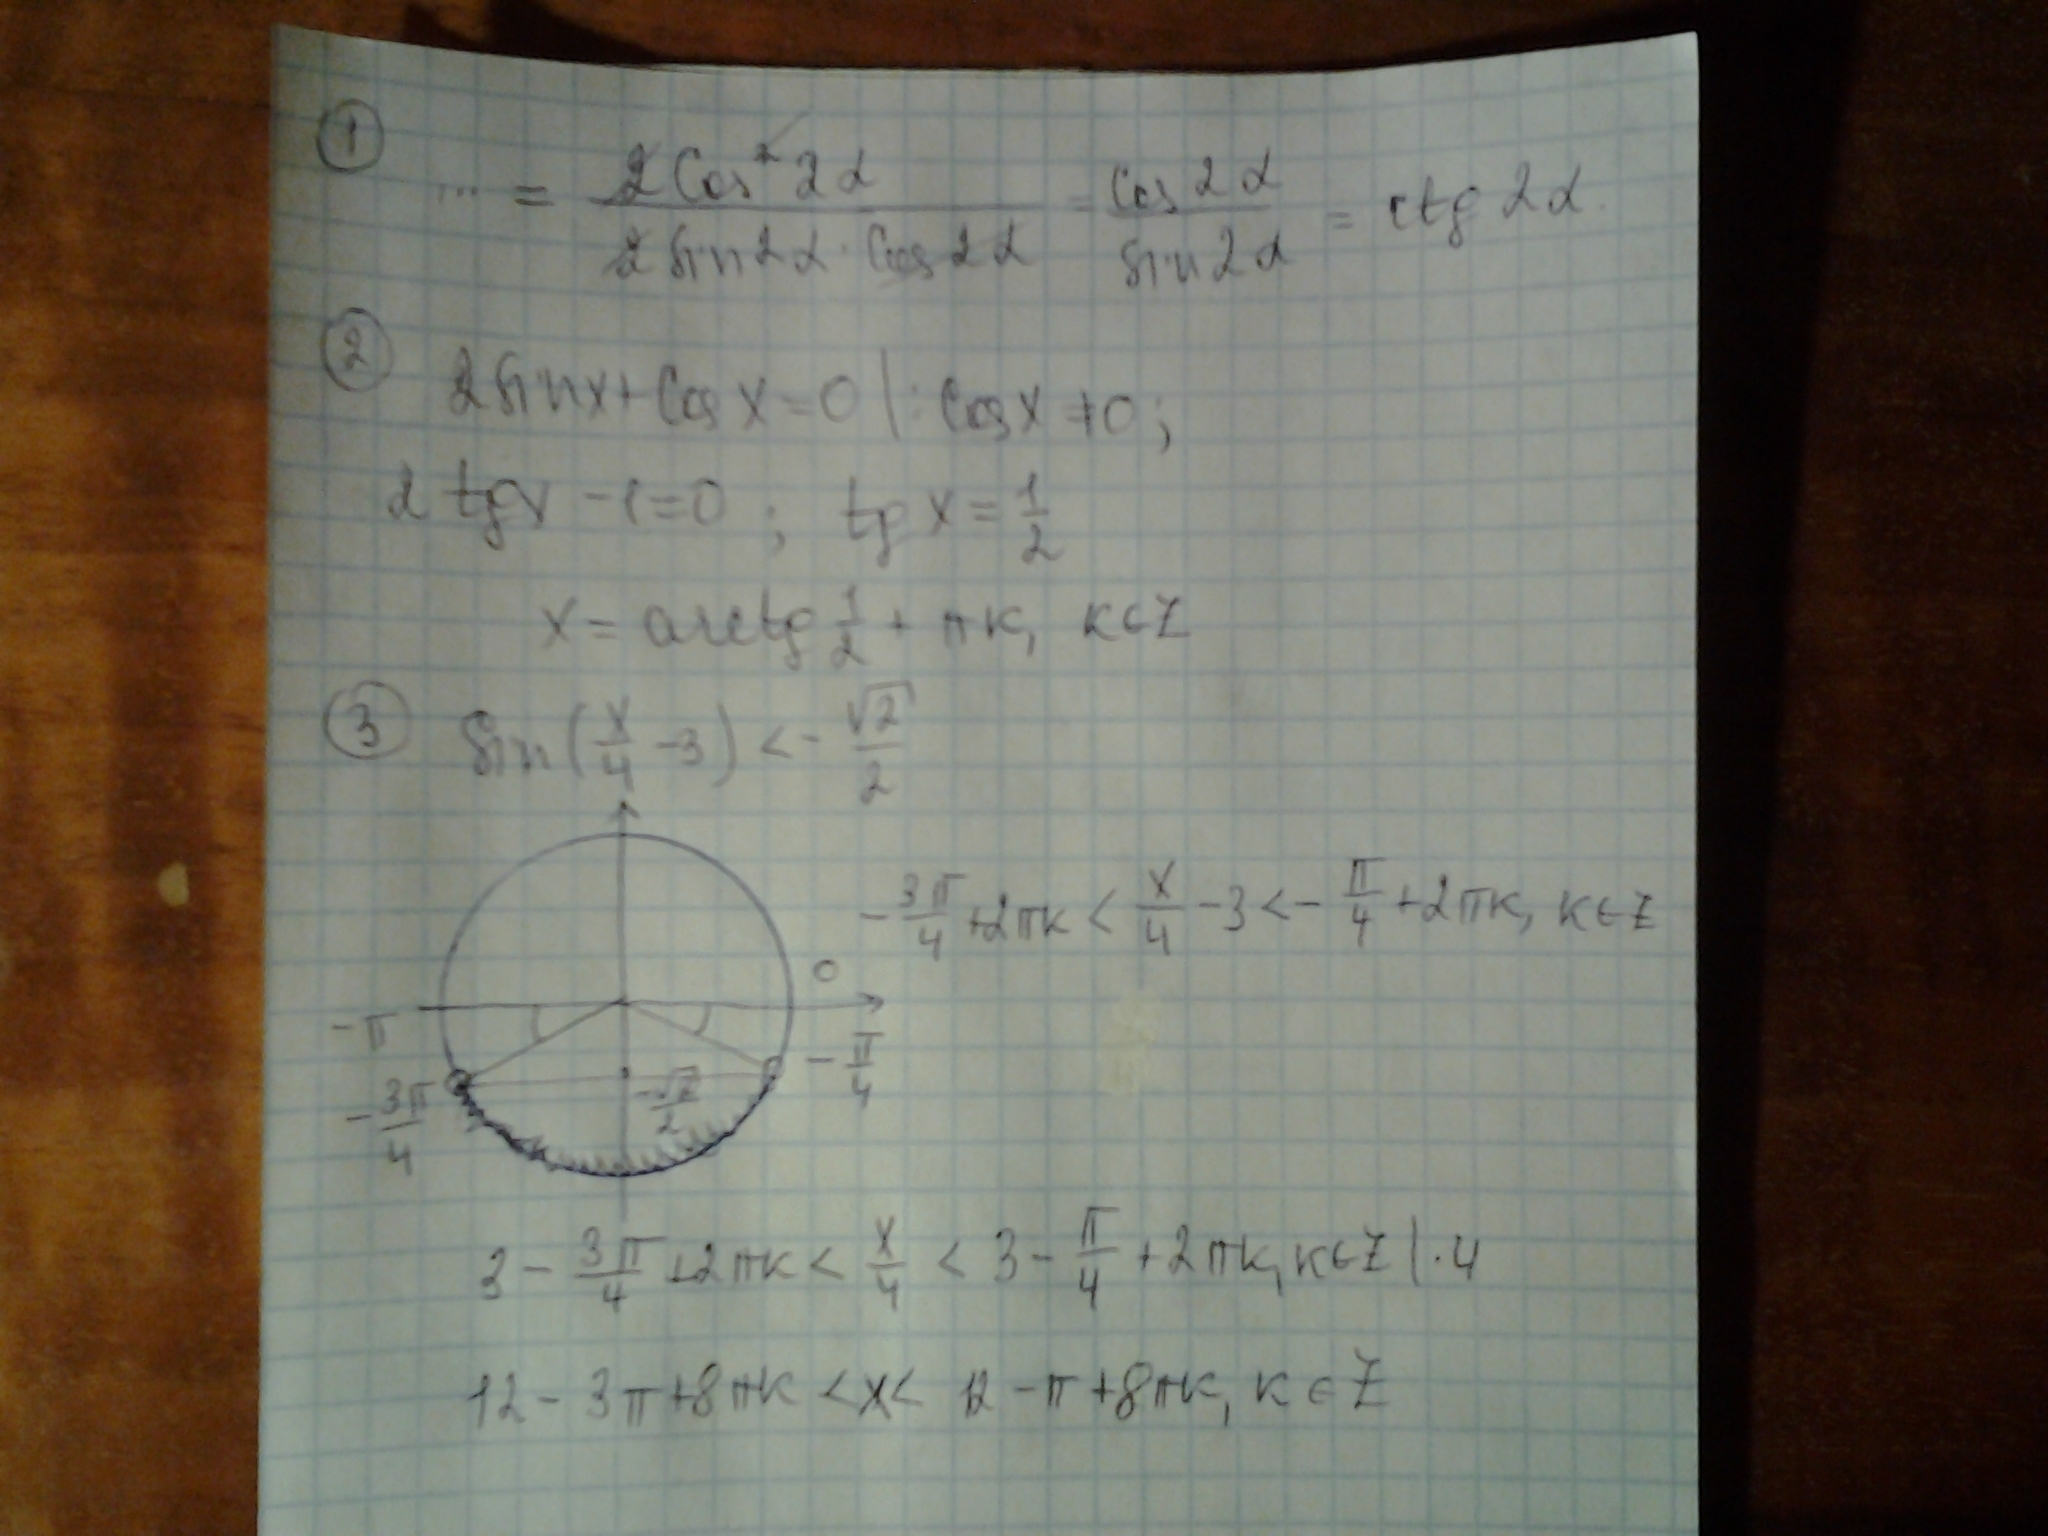 ① ... = 2Cos²2α / 2Sin2α·Cos2α = Cos2α / Sin2α = ctg 2α.
② 2Sinx+Cosx=0 |: Cosx≠0;
2 tgx -1=0; tgx=1/2
x= arctg 1/2 + πk, k∈Z
③ Sin(x/4 -3) <- √2/2
-3π/4+2πk < x/4 -3 <- π/4 +2πk, k∈Z
0
-π
-π/4
-3π/4
-√2/2
3- 3π/4 +2πk < x/4 < 3- π/4 +2πk, k∈Z |·4
12-3π+8πk <x< 12-π+8πk, k∈Z